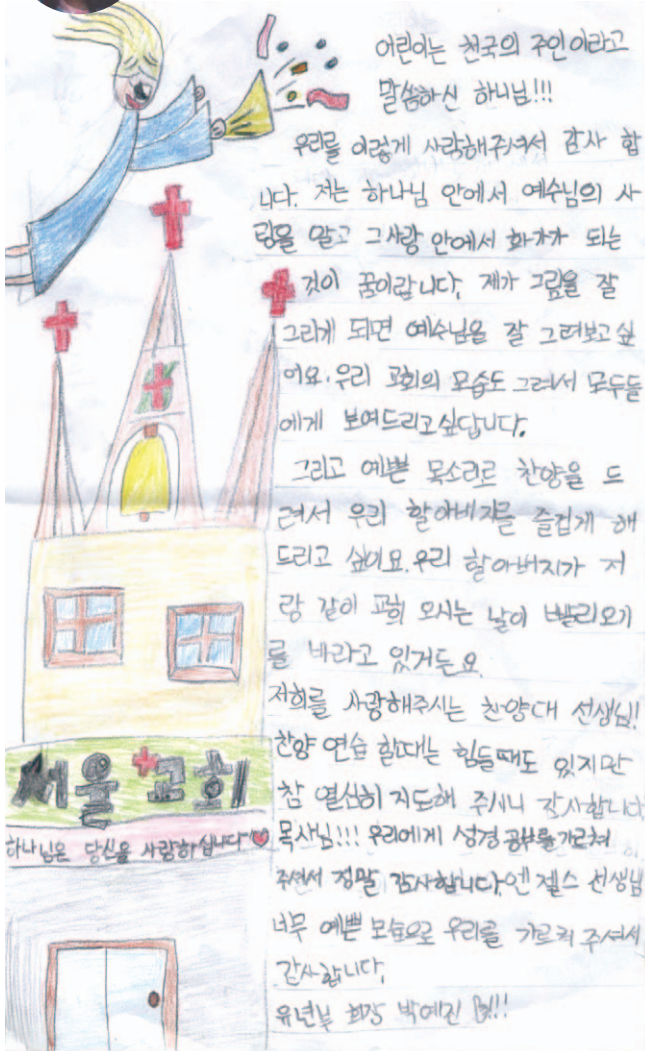 어린이는 천국의 주인이라고
말씀하신 하나님!!!
우리를 이렇게 사랑해주셔서 감사 합
니다. 저는 하나님 안에서 예수님의 사
랑을 알고 그사랑 안에서 화가가 되는
것이 꿈이랍니다. 제가 그림을 잘
그리게 되면 예수님을 잘 그려보고 싶
어요. 우리 교회의 모습도 그려서 모두들
에게 보여드리고 싶답니다.
그리고 예쁜 목소리로 찬양을 드
려서 우리 할아버지를 즐겁게 해
드리고 싶어요. 우리 할아버지가 저
랑 같이 교회 오시는 날이 빨리오기
를 바라고 있거든요
저희를 사랑해주시는 찬양대 선생님!
찬양 연습 할때는 힘들때도 있지만
참 열심히 지도해 주시니 감사합니다
목사님!!! 우리에게 성경 공부를 가르쳐
주셔서 정말 감사합니다. 엔젤스 선생님
너무 예쁜 모습으로 우리를 가르쳐 주셔서
감사합니다.
유년부 회장 박예진 !!!
서울 교회
하나님은 당신을 사랑하십니다